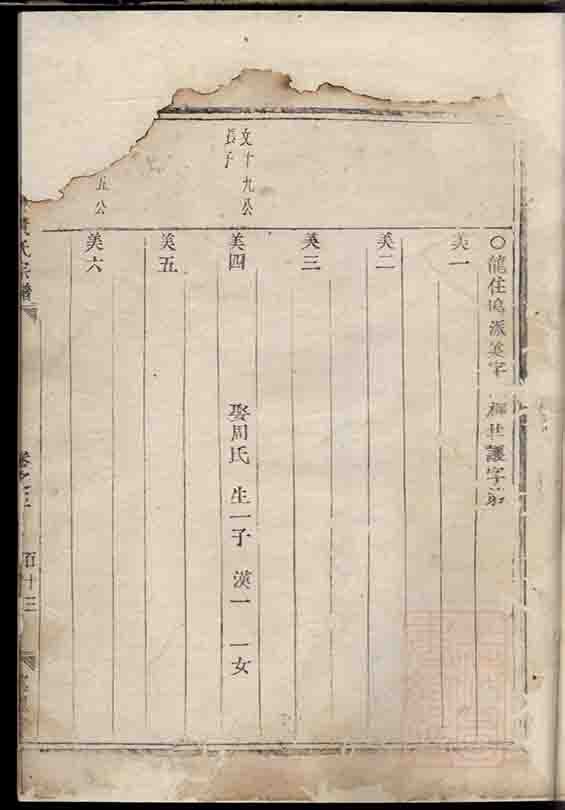 ○龍住塢派美字 福世護字弟
美一
美二
美三
文十九公
長子
美四 娶周氏 生一子 漢一 一女
美五
五公
美六
黃氏宗譜 卷之三 百十三